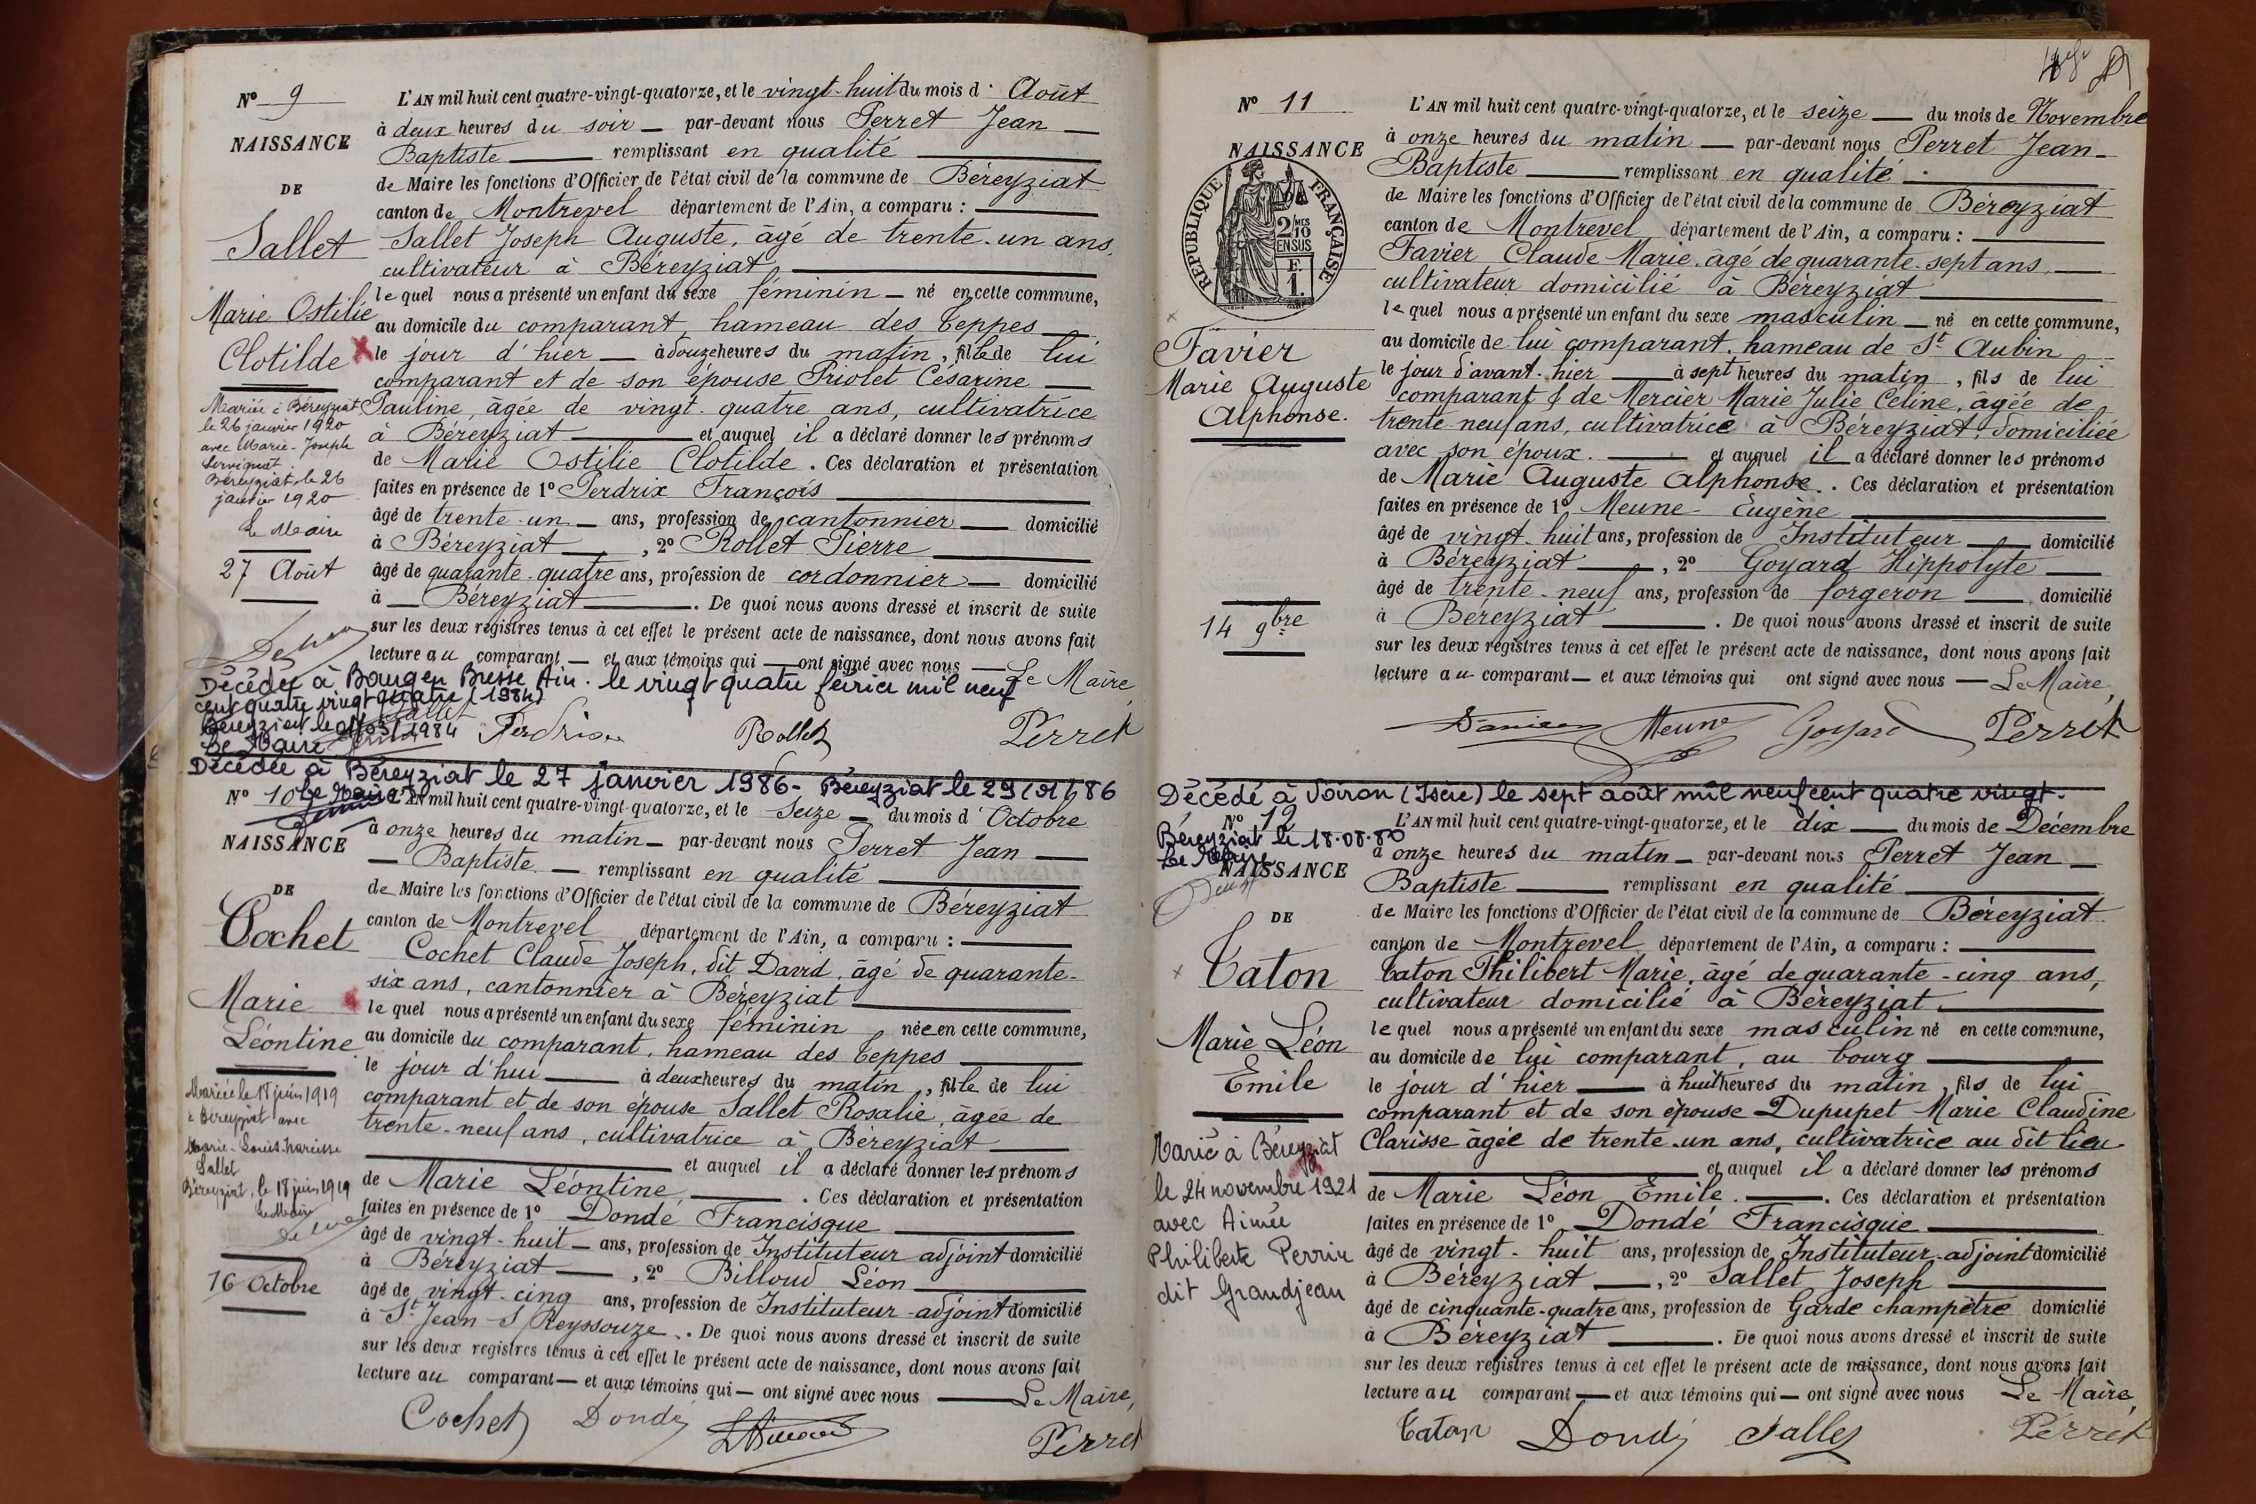 N° 9
NAISSANCE
DE
Sallet
Marie Ostilie
Clotilde
Mariée à Béreyziat
le 26 janvier 1920
avec Marie-Joseph
Béreyziat, le 26
janvier 1920
Le Maire
27 Août
L'AN mil huit cent quatre-vingt-quatorze, et le vingt-huit du mois d' Août
à deux heures du soir — par-devant nous Perret Jean
Baptiste — remplissant en qualité
de Maire les fonctions d'Officier de l'état civil de la commune de Béreyziat
canton de Montrevel département de l'Ain, a comparu :
Sallet Joseph Auguste, âgé de trente-un ans,
cultivateur à Béreyziat
le quel nous a présenté un enfant du sexe féminin — né en cette commune,
au domicile du comparant, hameau des Teppes
le jour d'hier — à douze heures du matin, fille de lui
comparant et de son épouse Priolet Césarine
Pauline, âgée de vingt-quatre ans, cultivatrice
à Béreyziat — et auquel il a déclaré donner les prénoms
de Marie Ostilie Clotilde. Ces déclaration et présentation
faites en présence de 1° Perdrix François
âgé de trente-un — ans, profession de cantonnier — domicilié
à Béreyziat —, 2° Rollet Pierre
âgé de quarante-quatre ans, profession de cordonnier — domicilié
à — Béreyziat —. De quoi nous avons dressé et inscrit de suite
sur les deux registres tenus à cet effet le présent acte de naissance, dont nous avons fait
lecture au comparant — et aux témoins qui — ont signé avec nous — Le Maire,
Décédée à Bourg en Bresse Ain. le vingt quatre février mil neuf
cent quatre vingt quatre (1984)
Béreyziat le 01/03/1984
Le Maire
Sallet Perdrix Rollet Perret
Décédée à Béreyziat le 27 janvier 1986 - Béreyziat le 29/01/86
Le Maire
N° 10
NAISSANCE
DE
Cochet
Marie
Léontine
Mariée le 18 juin 1919
à Béreyziat avec
Marie-Louis-Narcisse
Sallet
Béreyziat, le 18 juin 1919
Le Maire
16 Octobre
L'AN mil huit cent quatre-vingt-quatorze, et le seize — du mois d' Octobre
à onze heures du matin — par-devant nous Perret Jean
— Baptiste — remplissant en qualité
de Maire les fonctions d'Officier de l'état civil de la commune de Béreyziat
canton de Montrevel département de l'Ain, a comparu :
Cochet Claude Joseph, dit David, âgé de quarante-
six ans, cantonnier à Béreyziat
le quel nous a présenté un enfant du sexe féminin, née en cette commune,
au domicile du comparant, hameau des Teppes
le jour d'hui — à deux heures du matin, fille de lui
comparant et de son épouse Sallet Rosalie, âgée de
trente-neuf ans, cultivatrice à Béreyziat
et auquel il a déclaré donner les prénoms
de Marie Léontine. — . Ces déclaration et présentation
faites en présence de 1° Dondé Francisque
âgé de vingt-huit — ans, profession de Instituteur adjoint domicilié
à Béreyziat —, 2° Billoud Léon
âgé de vingt-cinq ans, profession de Instituteur-adjoint domicilié
à St Jean-s/Reyssouze. . De quoi nous avons dressé et inscrit de suite
sur les deux registres tenus à cet effet le présent acte de naissance, dont nous avons fait
lecture au comparant — et aux témoins qui — ont signé avec nous — Le Maire,
Cochet Dondé Perret
N° 11
NAISSANCE
REPUBLIQUE FRANÇAISE
2/10 EN SUS
F.
1.
Favier
Marie Auguste
Alphonse.
14 9bre
L'AN mil huit cent quatre-vingt-quatorze, et le seize — du mois de Novembre
à onze heures du matin — par-devant nous Perret Jean-
Baptiste — remplissant en qualité
de Maire les fonctions d'Officier de l'état civil de la commune de Béreyziat
canton de Montrevel département de l'Ain, a comparu :
Favier Claude Marie, âgé de quarante-sept ans,
cultivateur domicilié à Béreyziat
le quel nous a présenté un enfant du sexe masculin — né en cette commune,
au domicile de lui comparant, hameau de St Aubin
le jour d'avant-hier — à sept heures du matin, fils de lui
comparant & de Mercier Marie Julie Celine, âgée de
trente-neuf ans, cultivatrice à Béreyziat, domiciliée
avec son époux. — et auquel il a déclaré donner les prénoms
de Marie Auguste Alphonse. . Ces déclaration et présentation
faites en présence de 1° Meune Eugène
âgé de vingt-huit ans, profession de Instituteur — domicilié
à Béreyziat —, 2° Goyard Hippolyte
âgé de trente-neuf ans, profession de forgeron — domicilié
à Béreyziat —. De quoi nous avons dressé et inscrit de suite
sur les deux registres tenus à cet effet le présent acte de naissance, dont nous avons fait
lecture au comparant — et aux témoins qui ont signé avec nous — Le Maire,
Meune Goyard Perret
Décédé à Voiron (Isère) le sept août mil neuf cent quatre vingt.
Béreyziat le 18.08.80
Le Maire
N° 12
NAISSANCE
DE
Caton
Marie Léon
Emile
Marié à Béreyziat
le 24 novembre 1921
avec Aimée
Philiberte Perrin
dit Grandjean
L'AN mil huit cent quatre-vingt-quatorze, et le dix — du mois de Décembre
à onze heures du matin — par-devant nous Perret Jean —
Baptiste — remplissant en qualité
de Maire les fonctions d'Officier de l'état civil de la commune de Béreyziat
canton de Montrevel département de l'Ain, a comparu :
Caton Philibert Marie, âgé de quarante-cinq ans,
cultivateur domicilié à Béreyziat.
le quel nous a présenté un enfant du sexe masculin né en cette commune,
au domicile de lui comparant, au bourg
le jour d'hier — à huit heures du matin, fils de lui
comparant et de son épouse Dupupet Marie Claudine
Clarisse âgée de trente-un ans, cultivatrice au dit lieu
et auquel il a déclaré donner les prénoms
de Marie Léon Emile. — . Ces déclaration et présentation
faites en présence de 1° Dondé Francisque
âgé de vingt-huit ans, profession de Instituteur-adjoint domicilié
à Béreyziat —, 2° Sallet Joseph
âgé de cinquante-quatre ans, profession de Garde champêtre domicilié
à Béreyziat —. De quoi nous avons dressé et inscrit de suite
sur les deux registres tenus à cet effet le présent acte de naissance, dont nous avons fait
lecture au comparant — et aux témoins qui — ont signé avec nous Le Maire,
Caton Dondé Sallet Perret